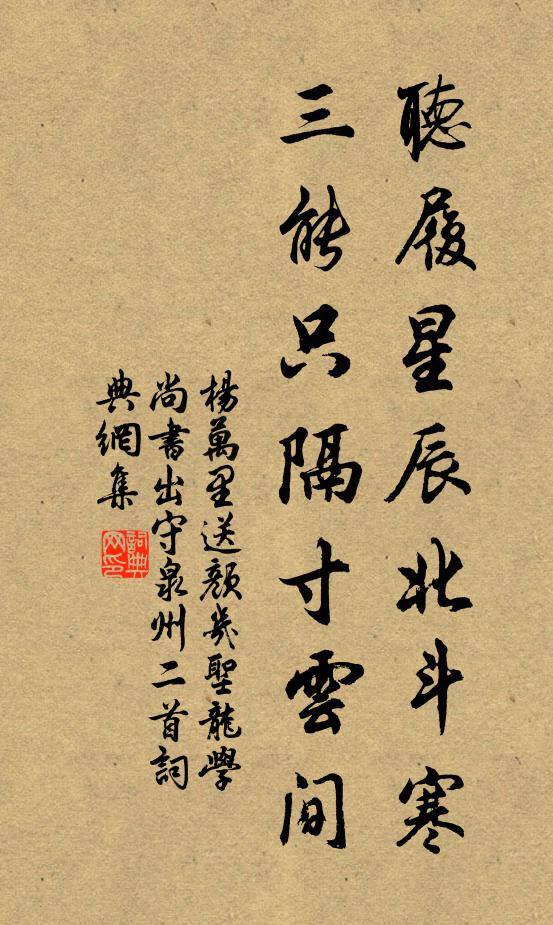 聽履星辰北斗寒
三能只隔寸雲間
楊萬里送顏幾聖龍學
尚書出守泉州二首詞
典網集
詞典网印